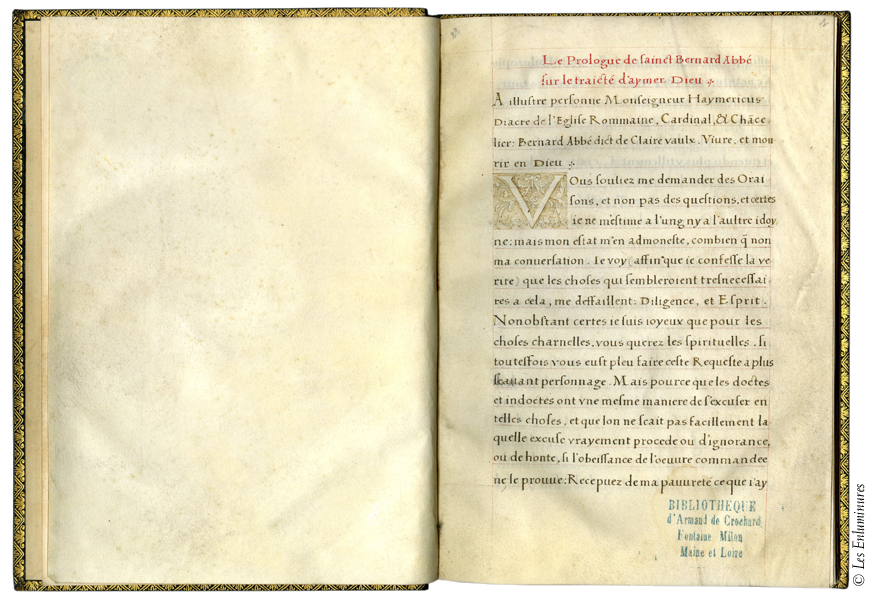 Le Prologue de sainct Bernard Abbé
sur le traicté d'aymer Dieu
A illustre personne Monseigneur Haymericus
Diacre de l'Eglise Rommaine, Cardinal, Et Chãce
lier: Bernard Abbé dict de Claire vaulx. Viure, et mou
rir en Dieu
VOus souliez me demander des Orai
sons, et non pas des questions, et certes
ie ne m'estime a l'ung ny a l'aultre idoy
ne: mais mon estat m'en admoneste, combien q̃ non
ma conuersation. Ie voy (affin que ie confesse la ve
rite) que les choses qui sembleroient tresnecessai
res a cela, me deffaillent: Diligence, et Esprit.
Nonobstant certes ie suis ioyeux que pour les
choses charnelles, vous querez les spirituelles. si
toutesfois vous eust pleu faire ceste Requeste a plus
scauant personnage. Mais pource que les doctes
et indoctes ont vne mesme maniere de s'excuser en
telles choses, et que lon ne scait pas facillement la
quelle excuse vrayement procede ou d'ignorance,
ou de honte, si l'obeissance de l'oeuure commandee
ne le prouue: Recepuez de ma pauureté ce que i'ay
BIBLIOTHEQUE
d'Armand de Crochard
Fontaine Milon
Maine et Loire
© Les Enluminures